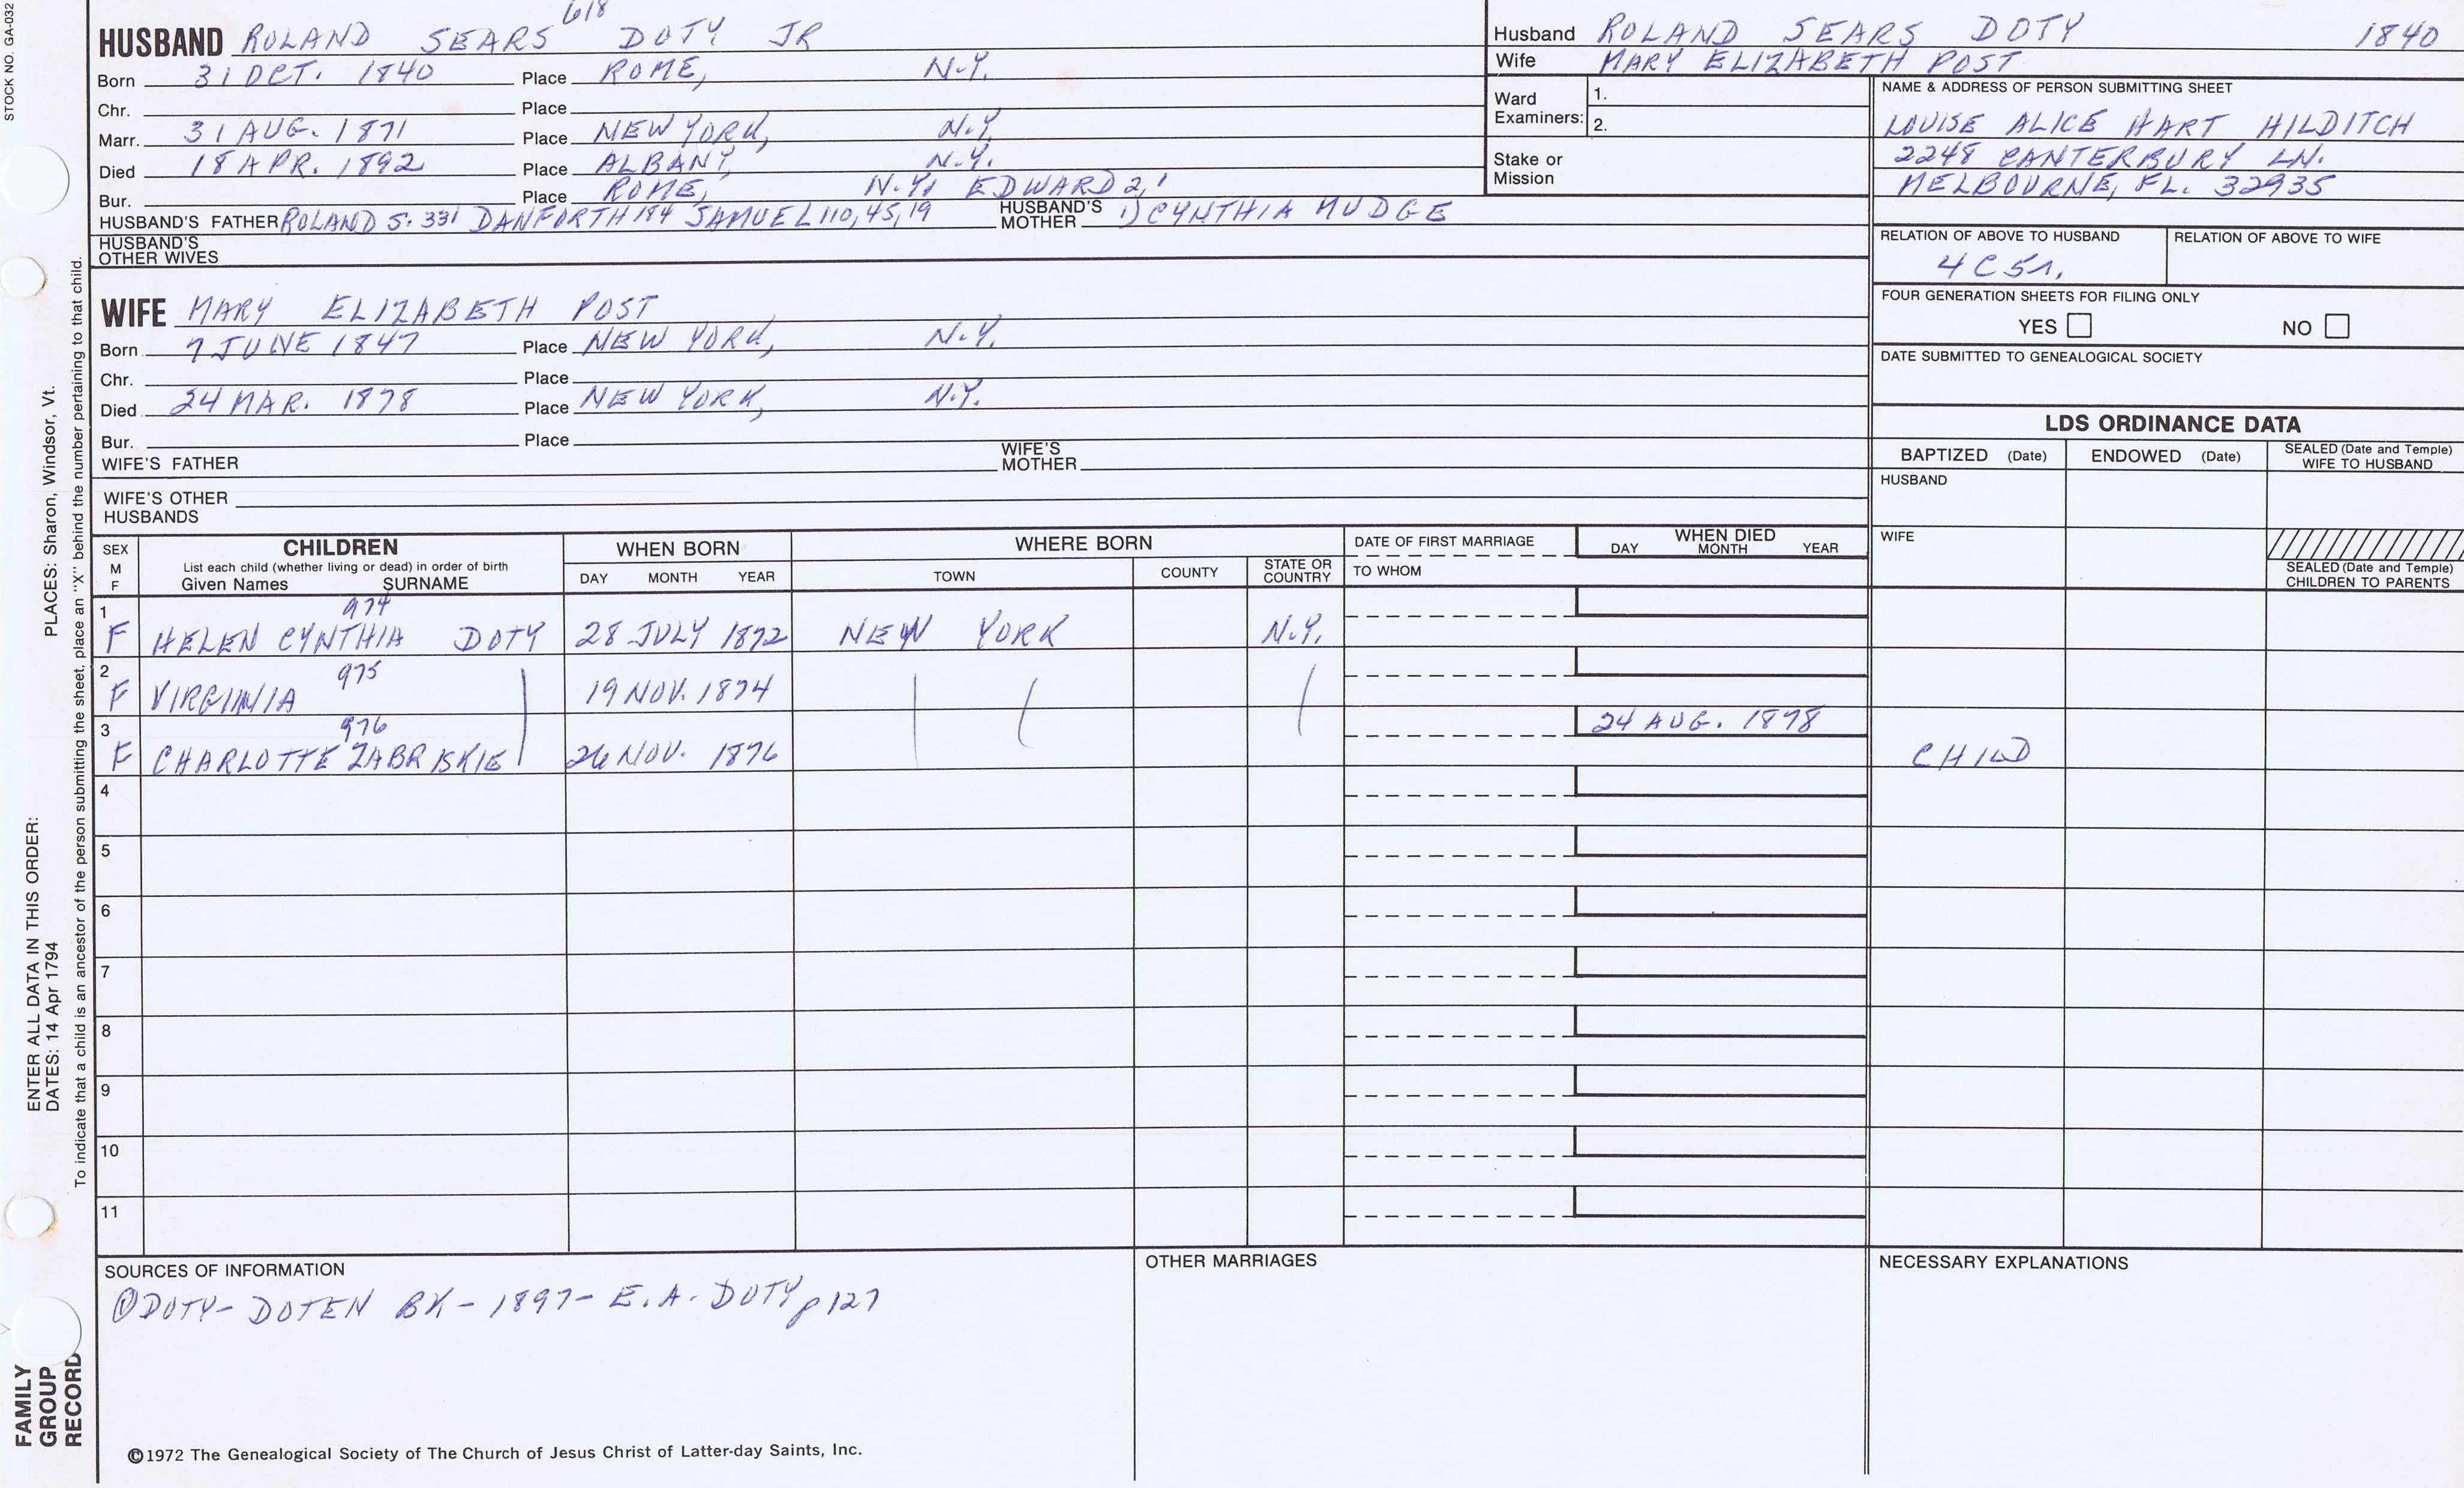 STOCK NO. GA-032
618
HUSBAND ROLAND SEARS DOTY JR
Born 31 OCT. 1840 Place ROME, N.Y.
Chr. Place
Marr. 31 AUG. 1871 Place NEW YORK, N.Y.
Died 18 APR. 1892 Place ALBANY, N.Y.
Bur. Place ROME, N.Y. EDWARD 2, 1
HUSBAND'S FATHER ROLAND S. 331 DANFORTH 184 SAMUEL 110, 45, 19 HUSBAND'S MOTHER 1) CYNTHIA MUDGE
HUSBAND'S OTHER WIVES
WIFE MARY ELIZABETH POST
Born 7 JUNE 1847 Place NEW YORK, N.Y.
Chr. Place
Died 24 MAR. 1878 Place NEW YORK, N.Y.
Bur. Place
WIFE'S FATHER WIFE'S MOTHER
WIFE'S OTHER HUSBANDS
Husband ROLAND SEARS DOTY 1840
Wife MARY ELIZABETH POST
Ward Examiners: 1.
2.
Stake or Mission
NAME & ADDRESS OF PERSON SUBMITTING SHEET
LOUISE ALICE HART HILDITCH
2248 CANTERBURY LN.
MELBOURNE, FL. 32935
RELATION OF ABOVE TO HUSBAND RELATION OF ABOVE TO WIFE
4 C 5 r.
FOUR GENERATION SHEETS FOR FILING ONLY
YES NO
DATE SUBMITTED TO GENEALOGICAL SOCIETY
LDS ORDINANCE DATA
BAPTIZED (Date) ENDOWED (Date) SEALED (Date and Temple) WIFE TO HUSBAND
HUSBAND
WIFE
SEALED (Date and Temple) CHILDREN TO PARENTS
SEX M F
CHILDREN
List each child (whether living or dead) in order of birth
Given Names SURNAME
WHEN BORN
DAY MONTH YEAR
WHERE BORN
TOWN COUNTY STATE OR COUNTRY
DATE OF FIRST MARRIAGE
TO WHOM
WHEN DIED
DAY MONTH YEAR
1 974
F HELEN CYNTHIA DOTY 28 JULY 1872 NEW YORK N.Y.
2 975
F VIRGINIA 19 NOV. 1874
3 976 24 AUG. 1878
F CHARLOTTE ZABRISKIE 26 NOV. 1876 CHILD
4
5
6
7
8
9
10
11
SOURCES OF INFORMATION
① DOTY-DOTEN BK - 1897 - E.A. DOTY p 127
OTHER MARRIAGES
NECESSARY EXPLANATIONS
©1972 The Genealogical Society of The Church of Jesus Christ of Latter-day Saints, Inc.
FAMILY GROUP RECORD
ENTER ALL DATA IN THIS ORDER:
DATES: 14 Apr 1794 PLACES: Sharon, Windsor, Vt.
To indicate that a child is an ancestor of the person submitting the sheet, place an "X" behind the number pertaining to that child.